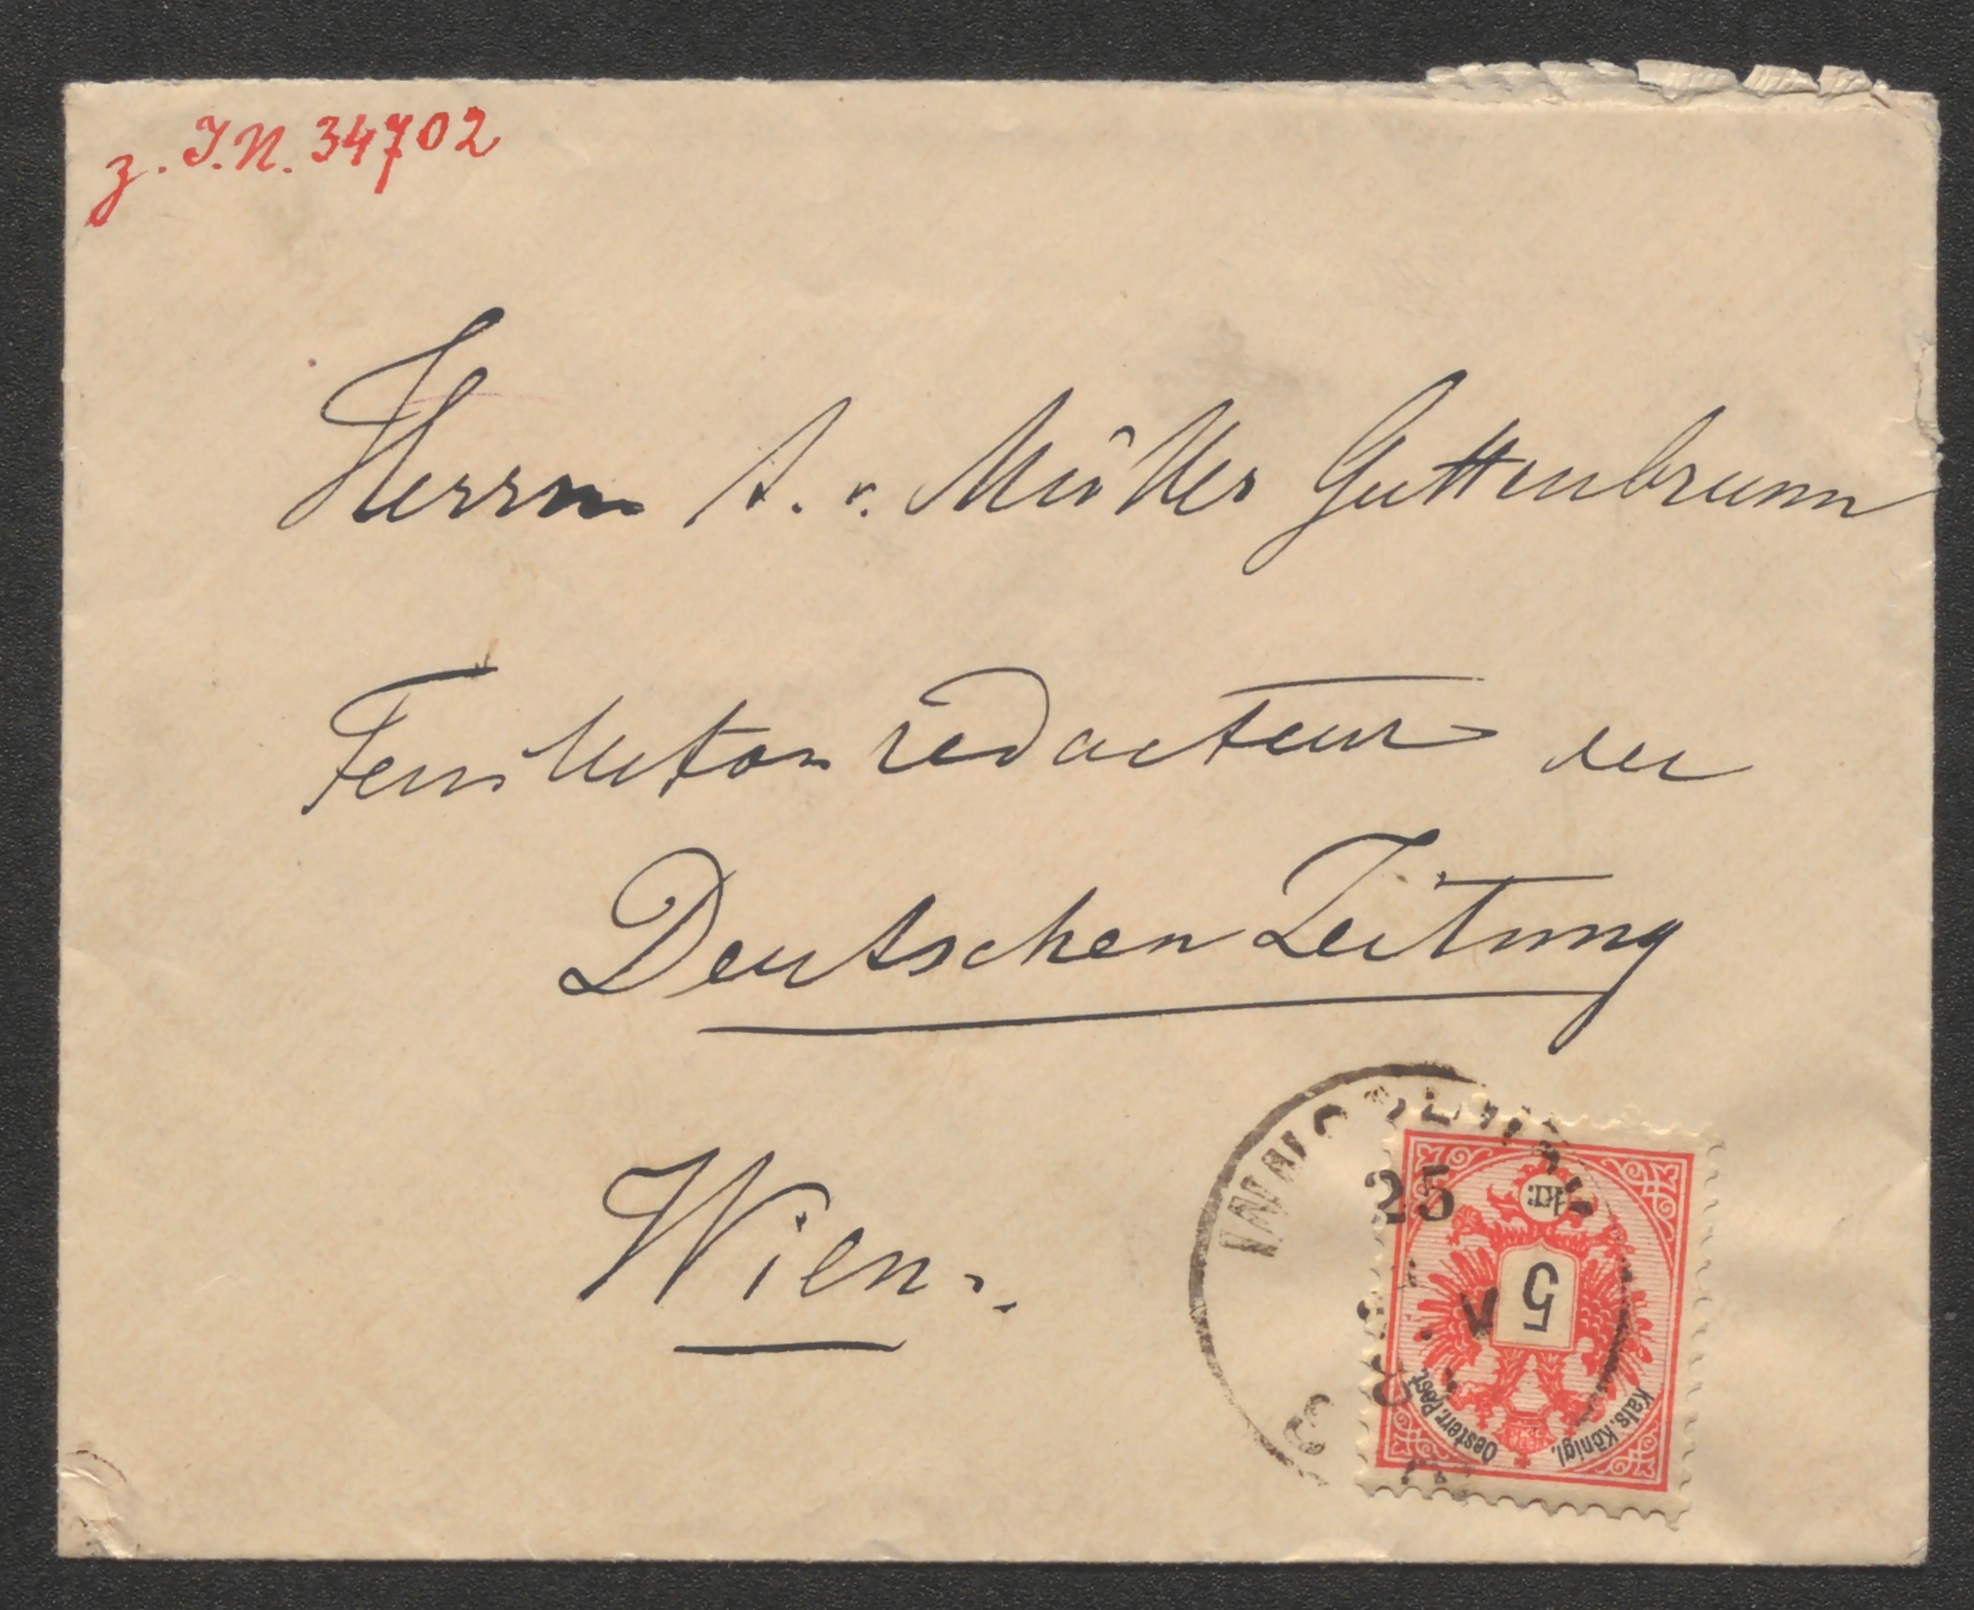 z. I.N. 34702
Herrn A. v. Müller Guttenbrunn
Feuilletonredacteur der
Deutschen Zeitung
Wien.
25
kr.
5
Kais. Königl.
Oesterr. Post.